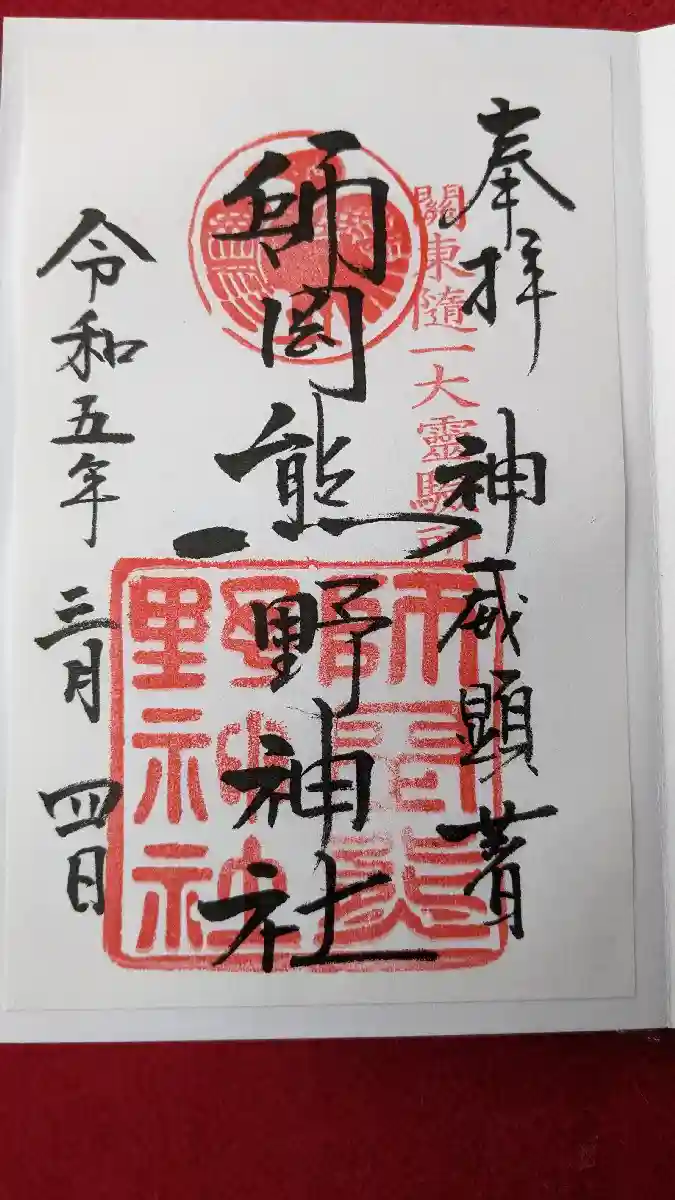 奉拝 神威顕著
關東隨一大靈驗所
師岡熊野神社
令和五年 三月 四日
師岡熊野神社